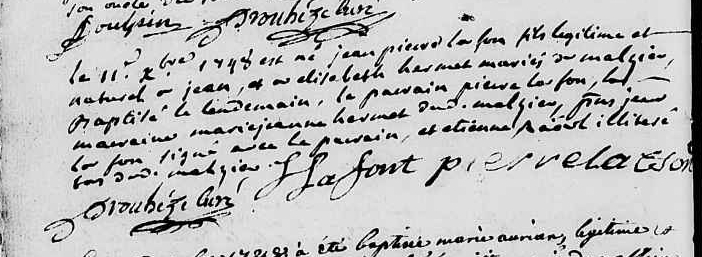 son oncle
Droubèze curé
le 11e xbre 1748 est né jean pierre lafon fils legitime et
naturel a jean, et a elisabeth hermet mariés de malgier,
Baptisé le lendemain, le parrain pierre lafon, la
marraine mariejeanne hermet dud. malgier, pns jean
lafon signé avec le parrain, et etienne illiteré
dud. malgier.
Lafont pierre lafon
Droubèze curé
1748 à été baptisée marie legitime